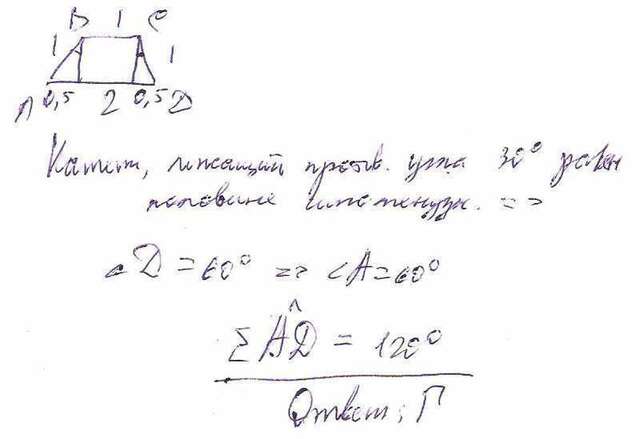 B 1 C
1 1
A 0,5 2 0,5 D
Катет, лежащий против. угла 30° равен
половине гипотенузы. =>
∠D = 60° => ∠A = 60°
Σ ÂD = 120°
Ответ: Г